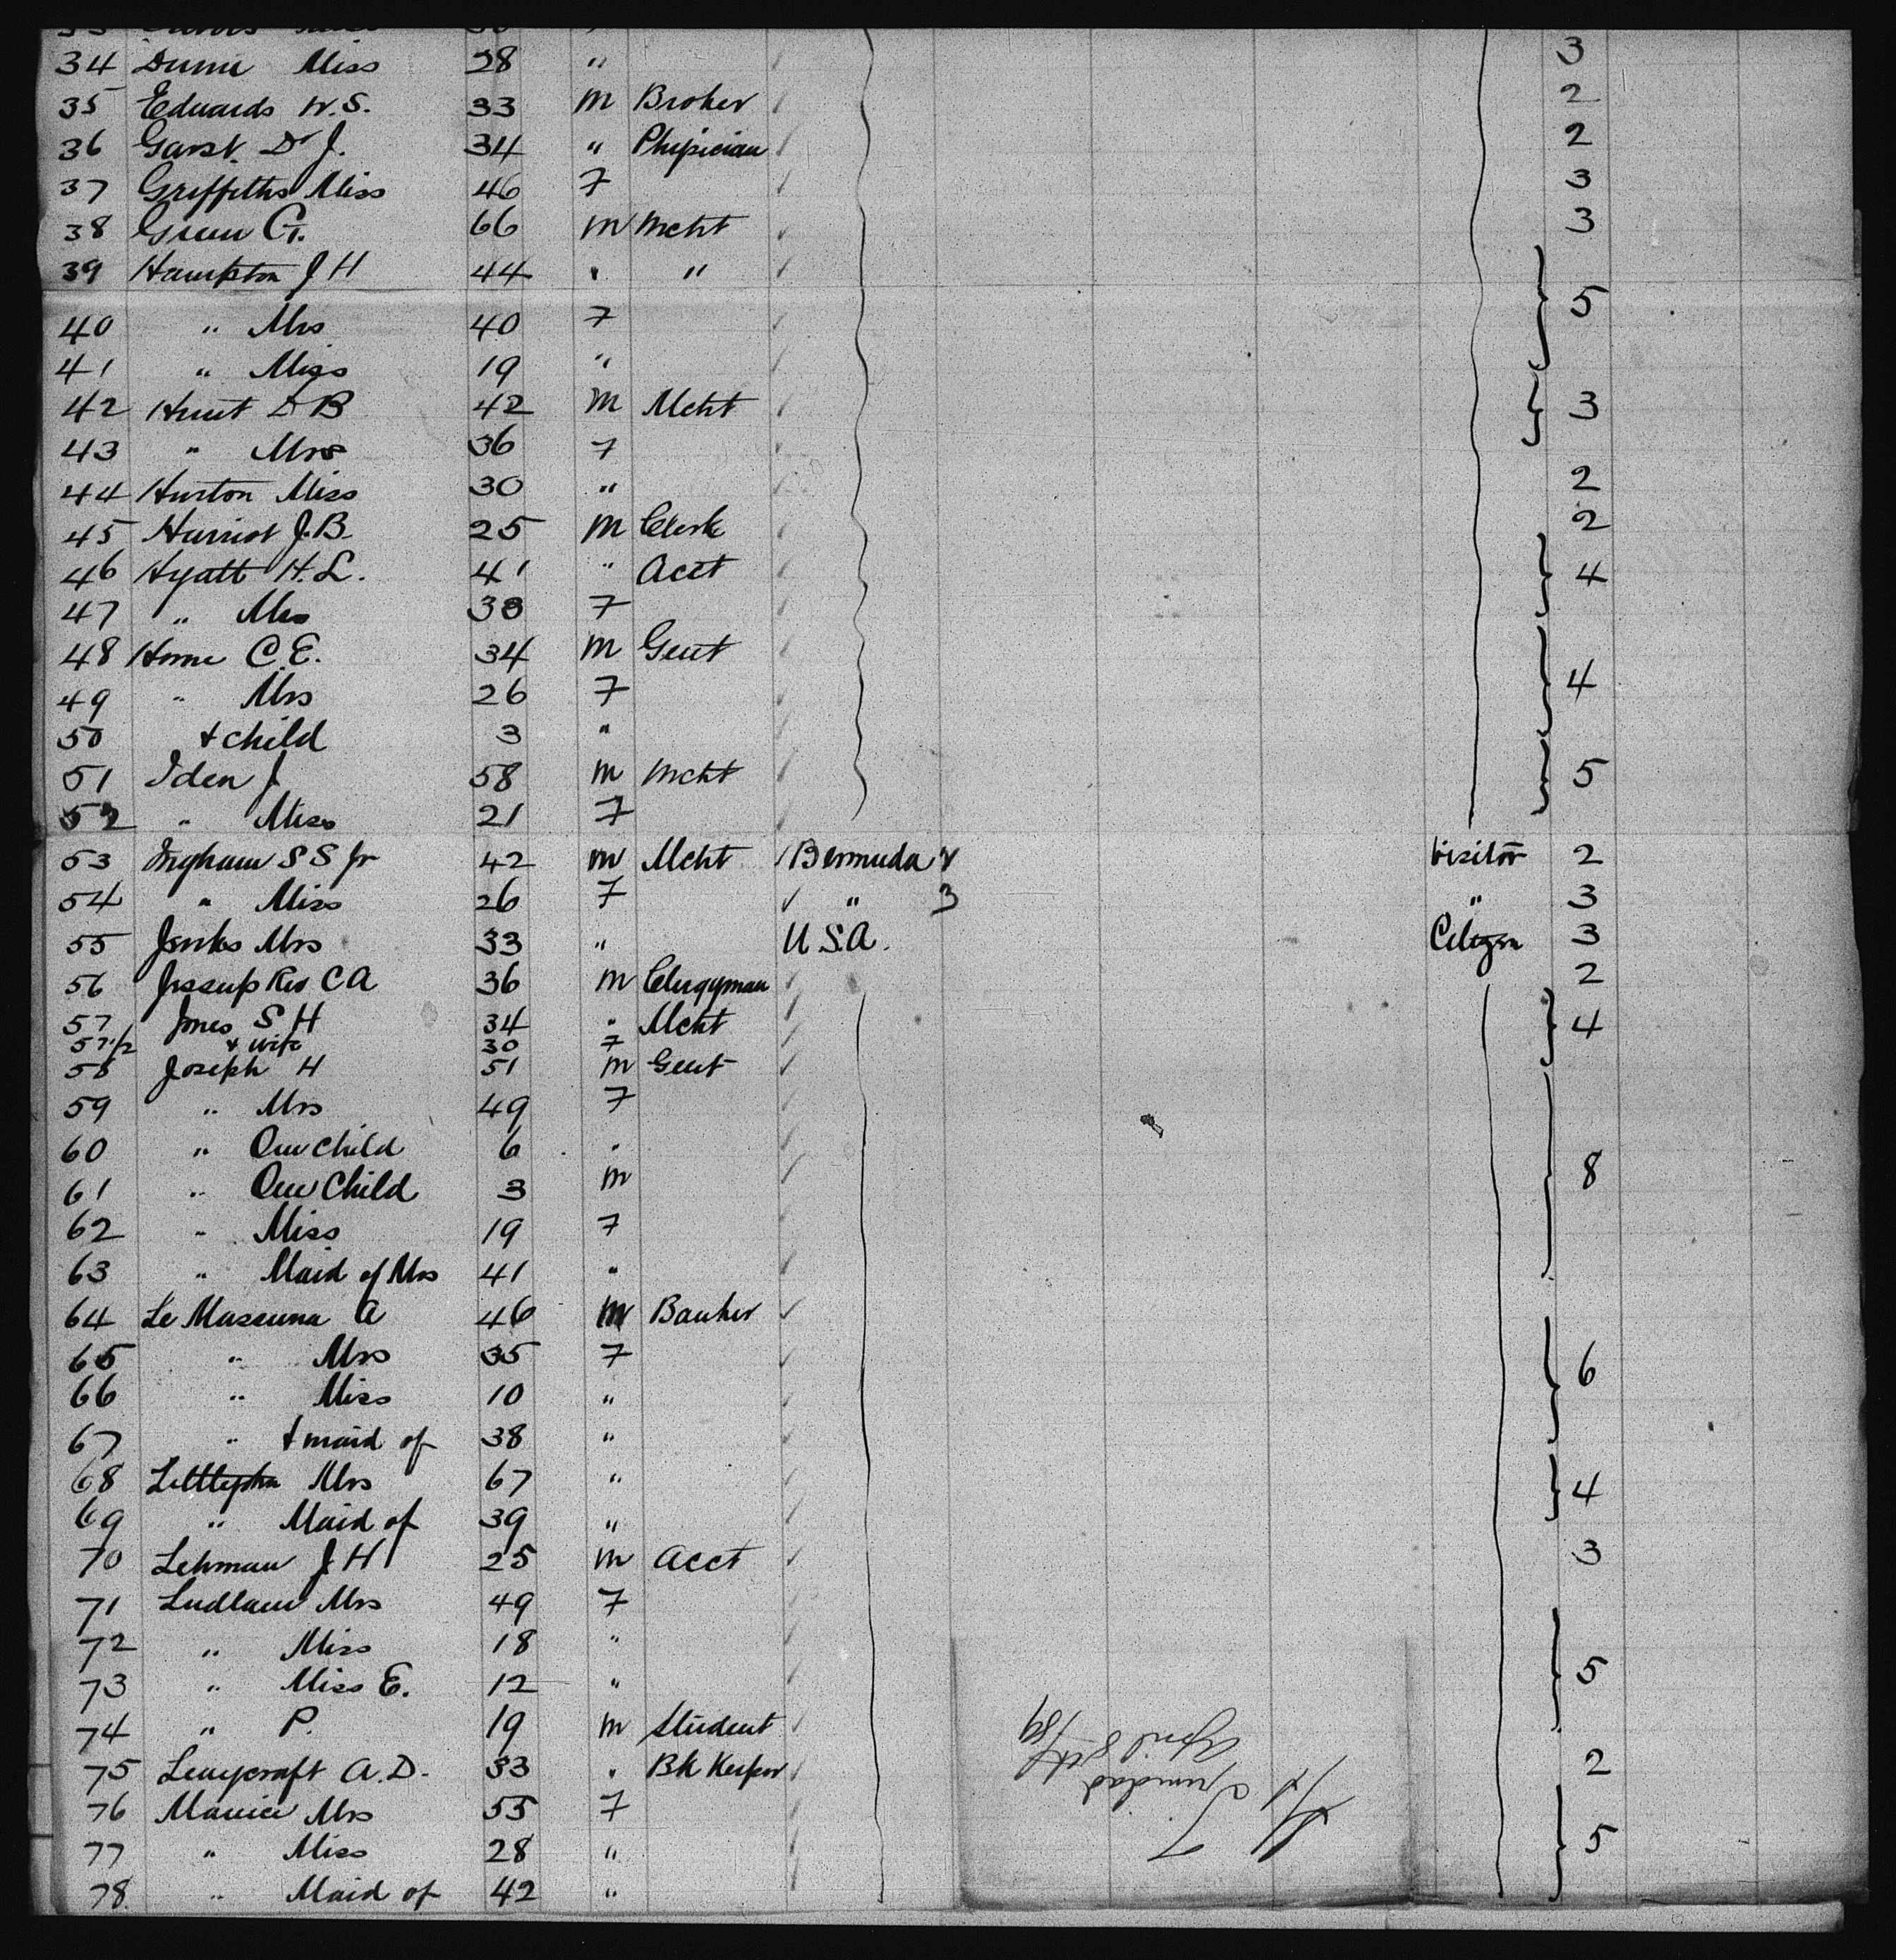 34 Dunn Miss 28 " 3
35 Edwards W.S. 33 m Broker 2
36 Garst. Dr J. 34 " Phisician 2
37 Griffiths Miss 46 F 3
38 Green G. 66 m Mcht 3
39 Hampton J H 44 " " 5
40 " Mrs 40 F
41 " Miss 19 "
42 Hunt D B 42 m Mcht 3
43 " Mrs 36 F
44 Hurton Miss 30 " 2
45 Hurriot J.B. 25 m Clerk 2
46 Hyatt H.L. 41 " Acct 4
47 " Mrs 38 F
48 Horne C.E. 34 m Gent 4
49 " Mrs 26 F
50 + child 3 "
51 Iden J 58 m Mcht 5
52 " Miss 21 F
53 Ingham S S Jr 42 m Mcht Bermuda Visitor 2
54 " Miss 26 F " 3 " 3
55 Jenks Mrs 33 " U.S.A. Citizen 3
56 Jessup Rev C A 36 m Clergyman 2
57 Jones S H 34 " Mcht 4
57 1/2 + wife 30 F
58 Joseph H 51 m Gent
59 " Mrs 49 F
60 " One Child 6 "
61 " One Child 3 m 8
62 " Miss 19 F
63 " Maid of Mrs 41 "
64 Le Massena A 46 m Banker
65 " Mrs 35 F 6
66 " Miss 10 "
67 " + maid of 38 "
68 Mrs 67 " 4
69 " Maid of 39 "
70 Lehman J H 25 m Acct 3
71 Ludlam Mrs 49 F
72 " Miss 18 "
73 " Miss E. 12 " 5
74 " P. 19 m Student
75 Leaycraft A.D. 33 " Bk Keeper 2
76 Maurice Mrs 55 F
77 " Miss 28 " 5
78 " Maid of 42 "
Trinidad
April 8th /89